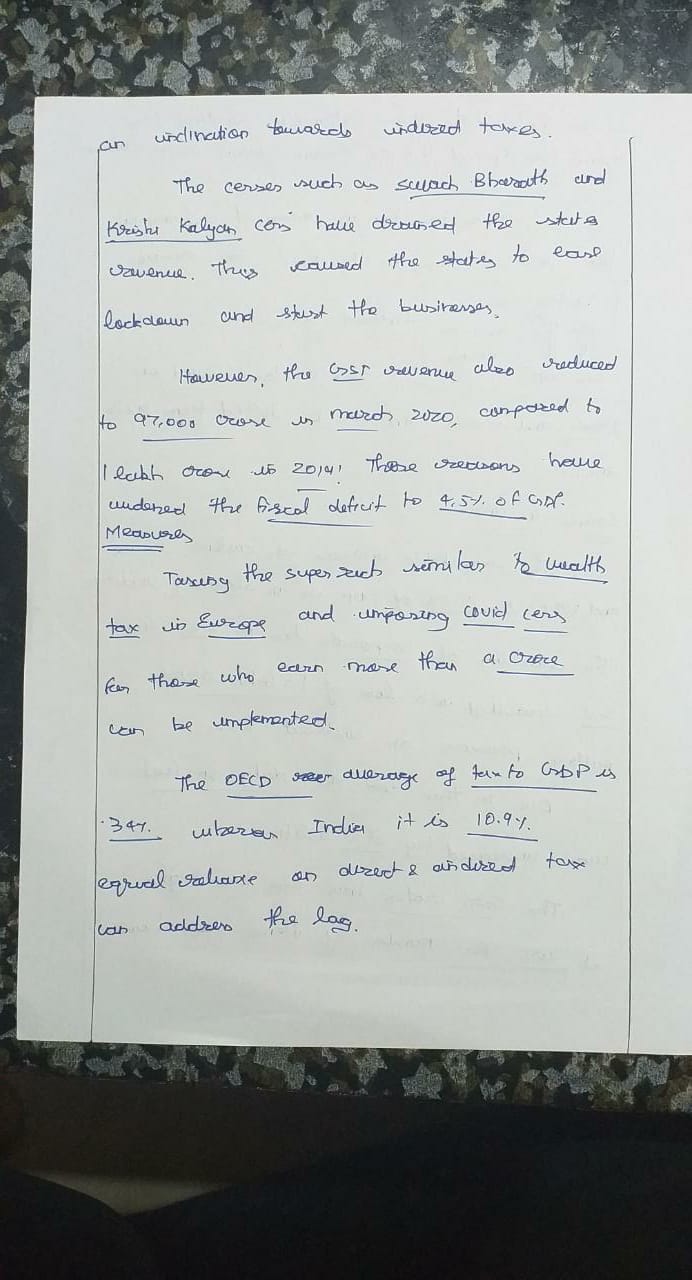 an inclination towards indirect taxes.
The cesses such as swach Bharath and
Krishi Kalyan cess have drained the states
revenue. This caused the states to ease
lockdown and start the businesses.
However, the GST revenue also reduced
to 97,000 crore in march 2020, compared to
1 lakh crore in 2019! These reasons have
widened the fiscal deficit to 4.5% of GDP.
Measures
Taxing the super rich similar to wealth
tax in Europe and imposing covid cess
for those who earn more than a crore
can be implemented.
The OECD average of tax to GDP is
34% whereas India it is 10.9%.
equal reliance on direct & indirect tax
can address the lag.